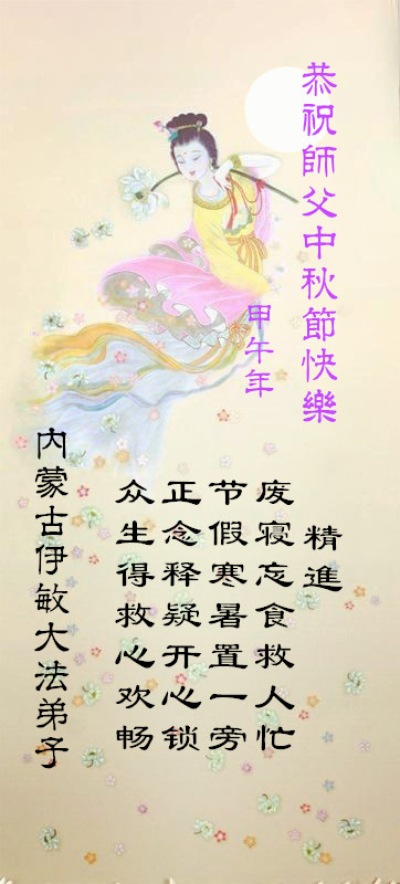 恭祝師父中秋節快樂
甲午年
精進
废寝忘食救人忙
节假寒暑置一旁
正念释疑开心锁
众生得救心欢畅
内蒙古伊敏大法弟子